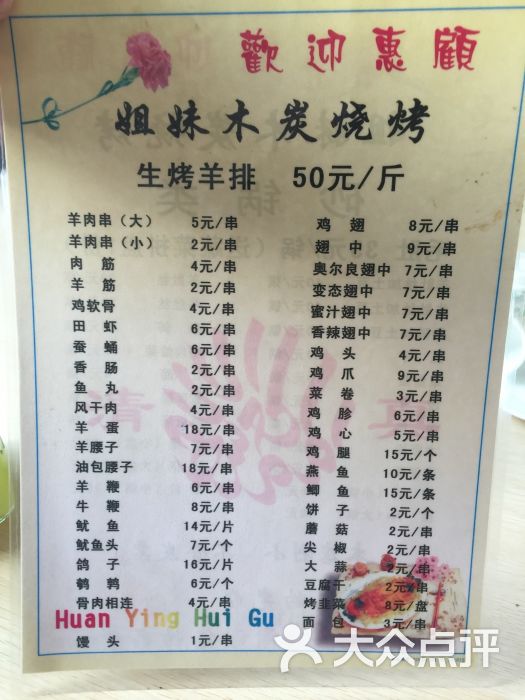 歡迎惠顧
姐妹木炭烧烤
生烤羊排 50元/斤
羊肉串（大） 5元/串
羊肉串（小） 2元/串
肉筋 4元/串
羊筋 2元/串
鸡软骨 4元/串
田虾 6元/串
蚕蛹 6元/串
香肠 2元/串
鱼丸 2元/串
风干肉 4元/串
羊蛋 18元/串
羊腰子 7元/串
油包腰子 18元/串
羊鞭 6元/串
牛鞭 8元/串
鱿鱼 14元/片
鱿鱼头 7元/个
鸽子 16元/片
鹌鹑 6元/个
骨肉相连 4元/串
馒头 1元/串
鸡翅 8元/串
翅中 9元/串
奥尔良翅中 7元/串
变态翅中 7元/串
蜜汁翅中 7元/串
香辣翅中 7元/串
鸡头 4元/串
鸡爪 9元/串
菜卷 3元/串
鸡胗 6元/串
鸡心 5元/串
鸡腿 15元/个
燕鱼 10元/条
鲫鱼 15元/条
饼子 2元/个
蘑菇 2元/串
尖椒 2元/串
大蒜 2元/串
豆腐干 2元/串
烤韭菜 8元/盘
面包 3元/串
Huan Ying Hui Gu
大众点评